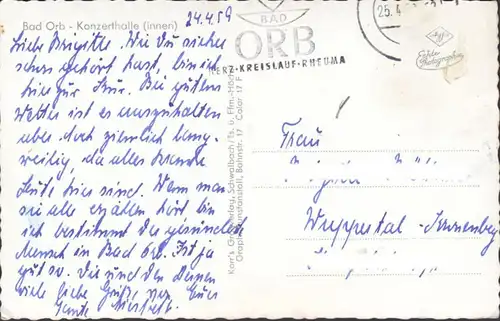 Bad Orb - Konzerthalle (innen)
24.4.59
Liebe Brigitte. Wie Du sicher
schon gehört hast, bin ich
hier zur Kur. Bei gutem
Wetter ist es auszuhalten
aber doch ziemlich lang-
weilig, da alles kranke
Leute hier sind. Wenn man
sie alle erzählen hört bin
ich bestimmt der gesündeste
Mensch in Bad Orb. Ist ja
gut so. Dir und den Deinen
viele liebe Grüße, von Eurer
Tante
BAD
ORB
HERZ·KREISLAUF·RHEUMA
25.4
Agfa
Echte
Photographie
Korr's Verlag, Schwalbach/Ts. u. Ffm.-Höchst
Graph. Kunstanstalt, Bahnstr. 17 Color 17 F
Frau
Wuppertal-